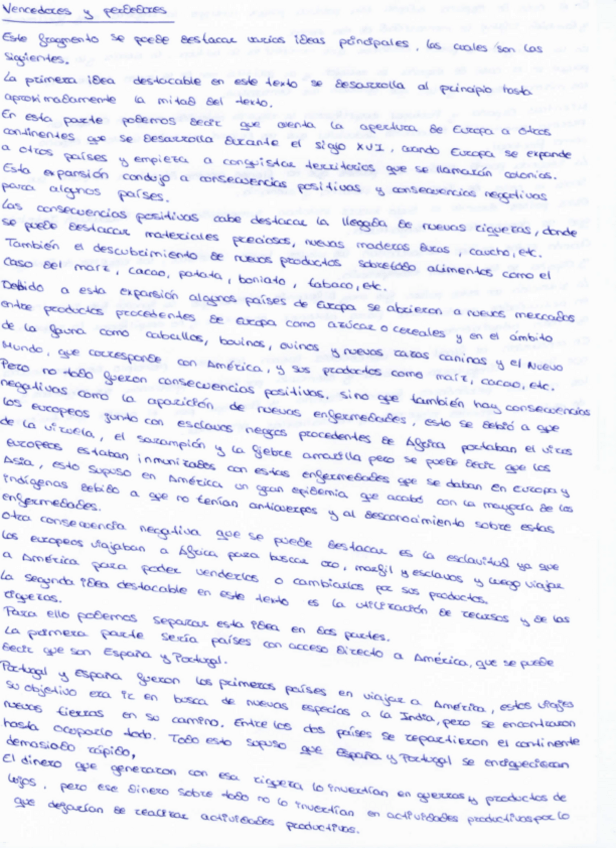 Vencedores y perdedores
Este fragmento se puede destacar varios ideas principales, las cuales son las
siguientes.
La primera idea destacable en este texto se desarrolla al principio hasta
aproximadamente la mitad del texto.
En esta parte podemos decir que cuenta la apertura de Europa a otros
continentes que se desarrolla durante el siglo XVI, cuando Europa se expande
a otros países y empieza a conquistar territorios que se llamarán colonias.
Esta expansión condujo a consecuencias positivas y consecuencias negativas
para algunos países.
Las consecuencias positivas cabe destacar la llegada de nuevas riquezas, donde
se puede destacar materiales preciosos, nuevas maderas duras, caucho, etc.
También el descubrimiento de nuevos productos sobretodo alimentos como el
caso del maíz, cacao, patata, boniato, tabaco, etc.
Debido a esta expansión algunos países de Europa se abrieron a nuevos mercados
entre productos procedentes de Europa como azúcar o cereales y en el ámbito
de la fauna como caballos, bovinos, ovinos y nuevos razas caninas y el Nuevo
Mundo, que corresponde con América, y sus productos como maíz, cacao, etc.
Pero no todo fueron consecuencias positivas, sino que también hay consecuencias
negativas como la aparición de nuevas enfermedades, esto se debió a que
los europeos junto con esclavos negros procedentes de África portaban el virus
de la viruela, el sarampión y la fiebre amarilla pero se puede decir que los
europeos estaban inmunizados con estas enfermedades que se daban en Europa y
Asia, esto supuso en América un gran epidemia que acabó con la mayoría de los
indígenas debido a que no tenían anticuerpos y al desconocimiento sobre estas
enfermedades.
Otra consecuencia negativa que se puede destacar es la esclavitud ya que
los europeos viajaban a África para buscar oro, marfil y esclavos y luego viajar
a América para poder venderlos o cambiarlos por sus productos.
La segunda idea destacable en este texto es la utilización de recursos y de las
riquezas.
Para ello podemos separar esta idea en dos partes.
La primera parte sería países con acceso directo a América, que se puede
decir que son España y Portugal.
Portugal y España fueron los primeros países en viajar a América, estos viajes
su objetivo era ir en busca de nuevas especias a la India, pero se encontraron
nuevos tierras en su camino. Entre los dos países se repartieron el continente
hasta ocuparlo todo. Todo esto supuso que España y Portugal se enriquecieran
demasiado rápido,
El dinero que generaron con esa riqueza lo invertían en guerras y productos de
lujos, pero ese dinero sobre todo no lo invertían en actividades productivas por lo
que dejarían de realizar actividades productivas.